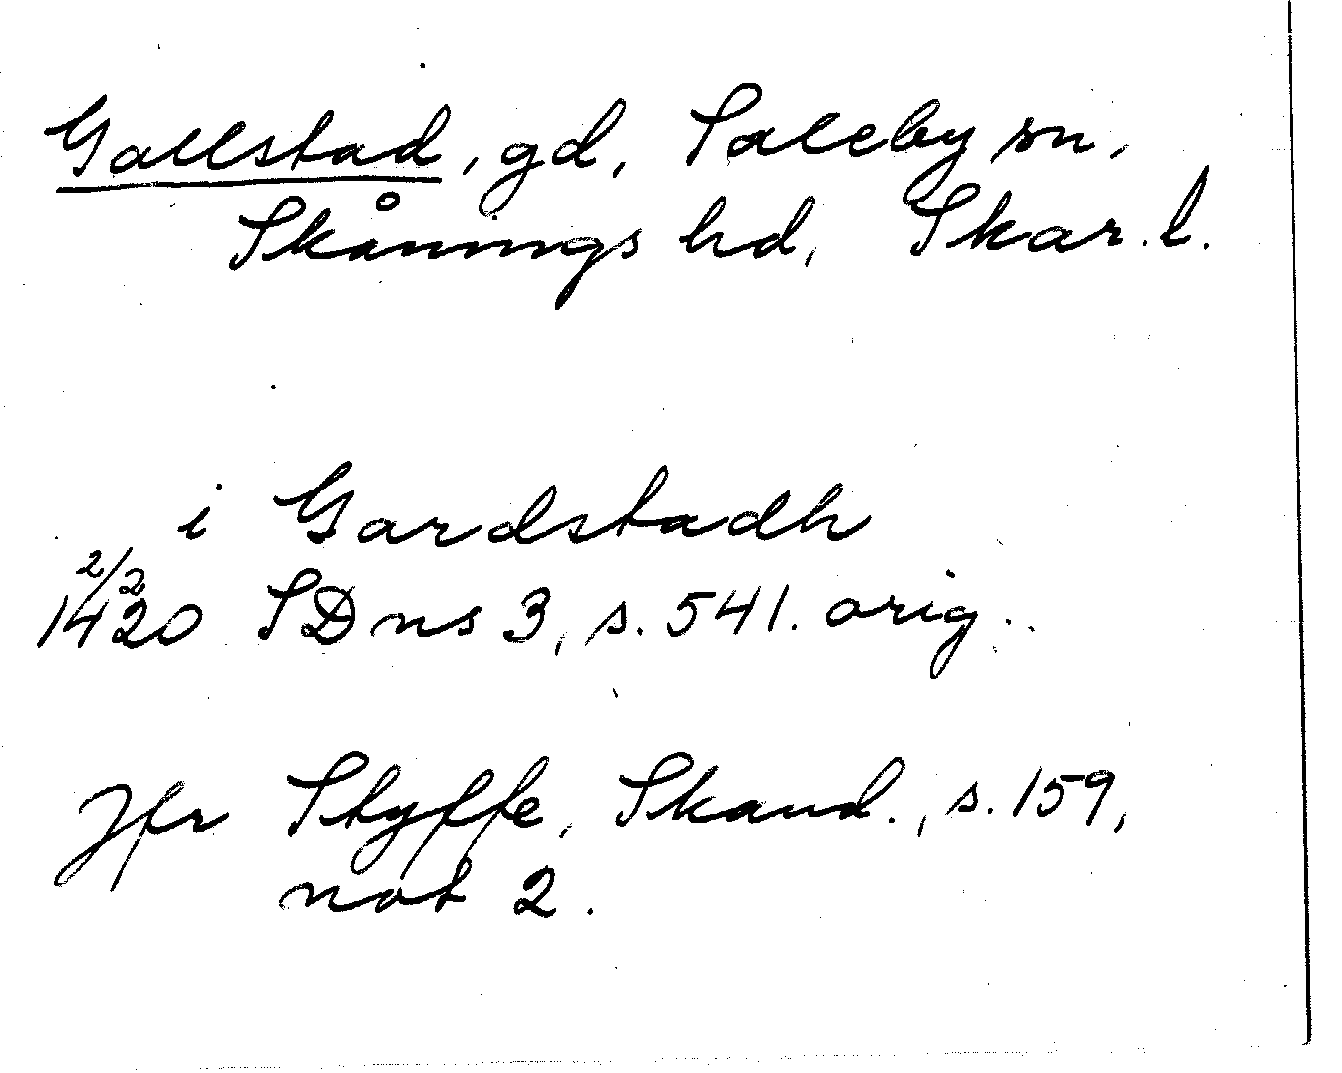 Gallstad, gd, Saleby sn,
Skånings hd, Skar. l.
i Gardstadh
2/2
1420 SD ns 3, s. 541. orig.
Jfr Styffe, Skand., s. 159,
not 2.